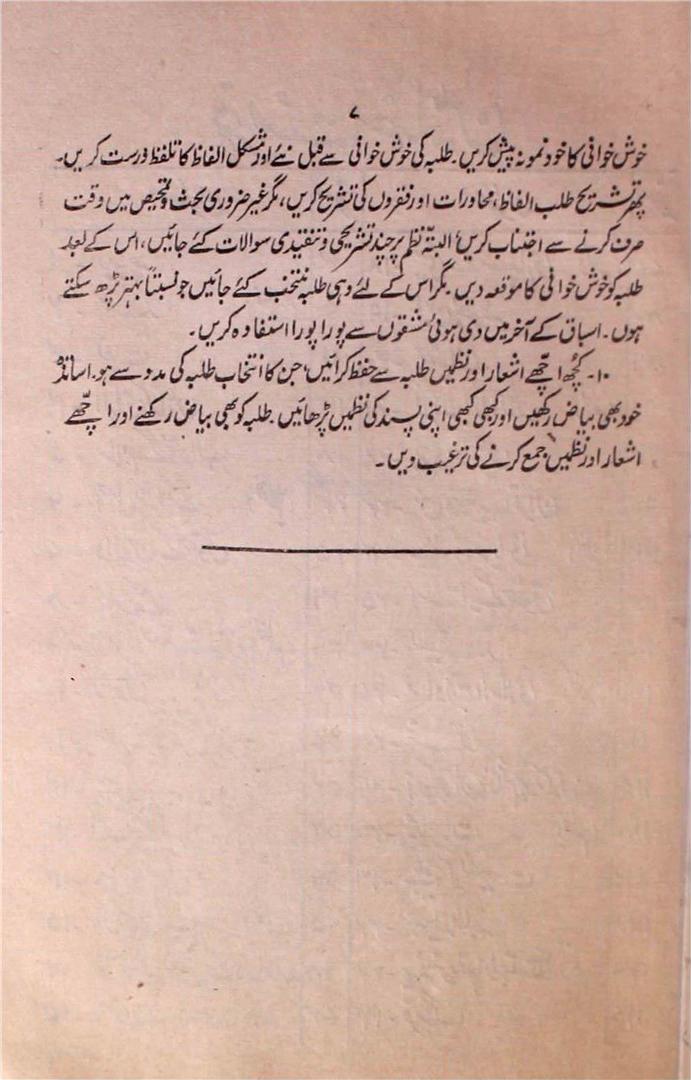 ۷
خوش خوانی کا خود نمونہ پیش کریں۔ طلبہ کی خوش خوانی سے قبل نئے اور مشکل الفاظ کا تلفظ درست کریں۔
پھر تشریح طلب الفاظ، محاورات اور فقروں کی تشریح کریں، مگر غیر ضروری بحث و تمحیص میں وقت
صرف کرنے سے اجتناب کریں، البتہ نظم پر چند تشریحی و تنقیدی سوالات کئے جائیں، اس کے بعد
طلبہ کو خوش خوانی کا موقعہ دیں۔ مگر اس کے لئے وہی طلبہ منتخب کئے جائیں جو نسبتاً بہتر پڑھ سکتے
ہوں۔ اسباق کے آخر میں دی ہوئی مشقوں سے پورا پورا استفادہ کریں۔
۱۰۔ کچھ اچھے اشعار اور نظمیں طلبہ سے حفظ کرائیں، جن کا انتخاب طلبہ کی مدد سے ہو۔ اساتذہ
خود بھی بیاض رکھیں اور کبھی کبھی اپنی پسند کی نظمیں پڑھائیں۔ طلبہ کو بھی بیاض رکھنے اور اچھے
اشعار اور نظمیں جمع کرنے کی ترغیب دیں۔